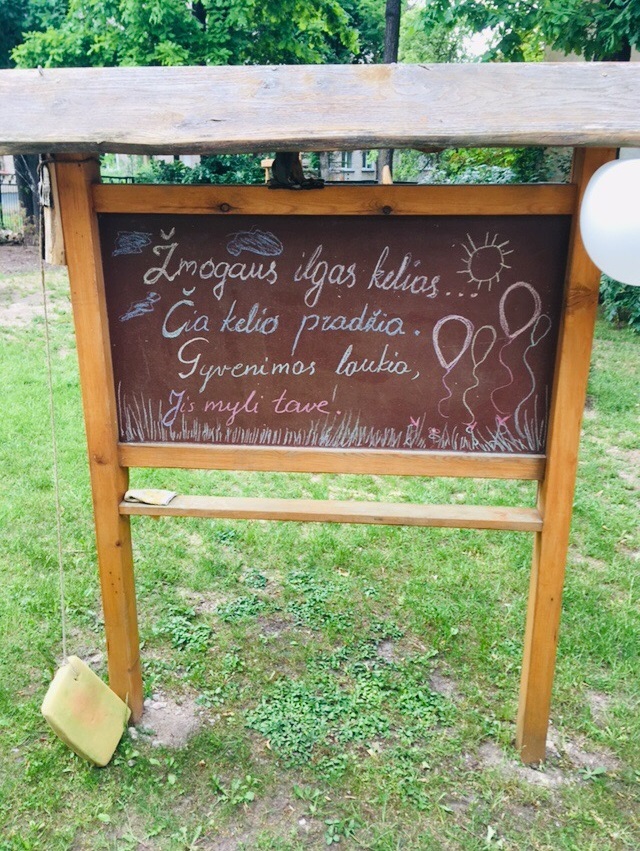 Žmogaus ilgas kelias...
Čia kelio pradžia.
Gyvenimas laukia,
Jis myli tave.